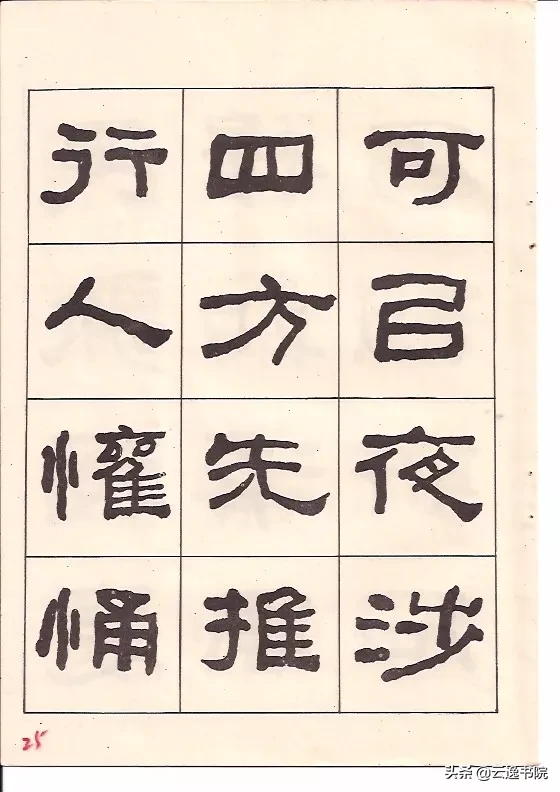 可㠯夜涉
四方无雍
行人懽悀
25
头条 @云逸书院